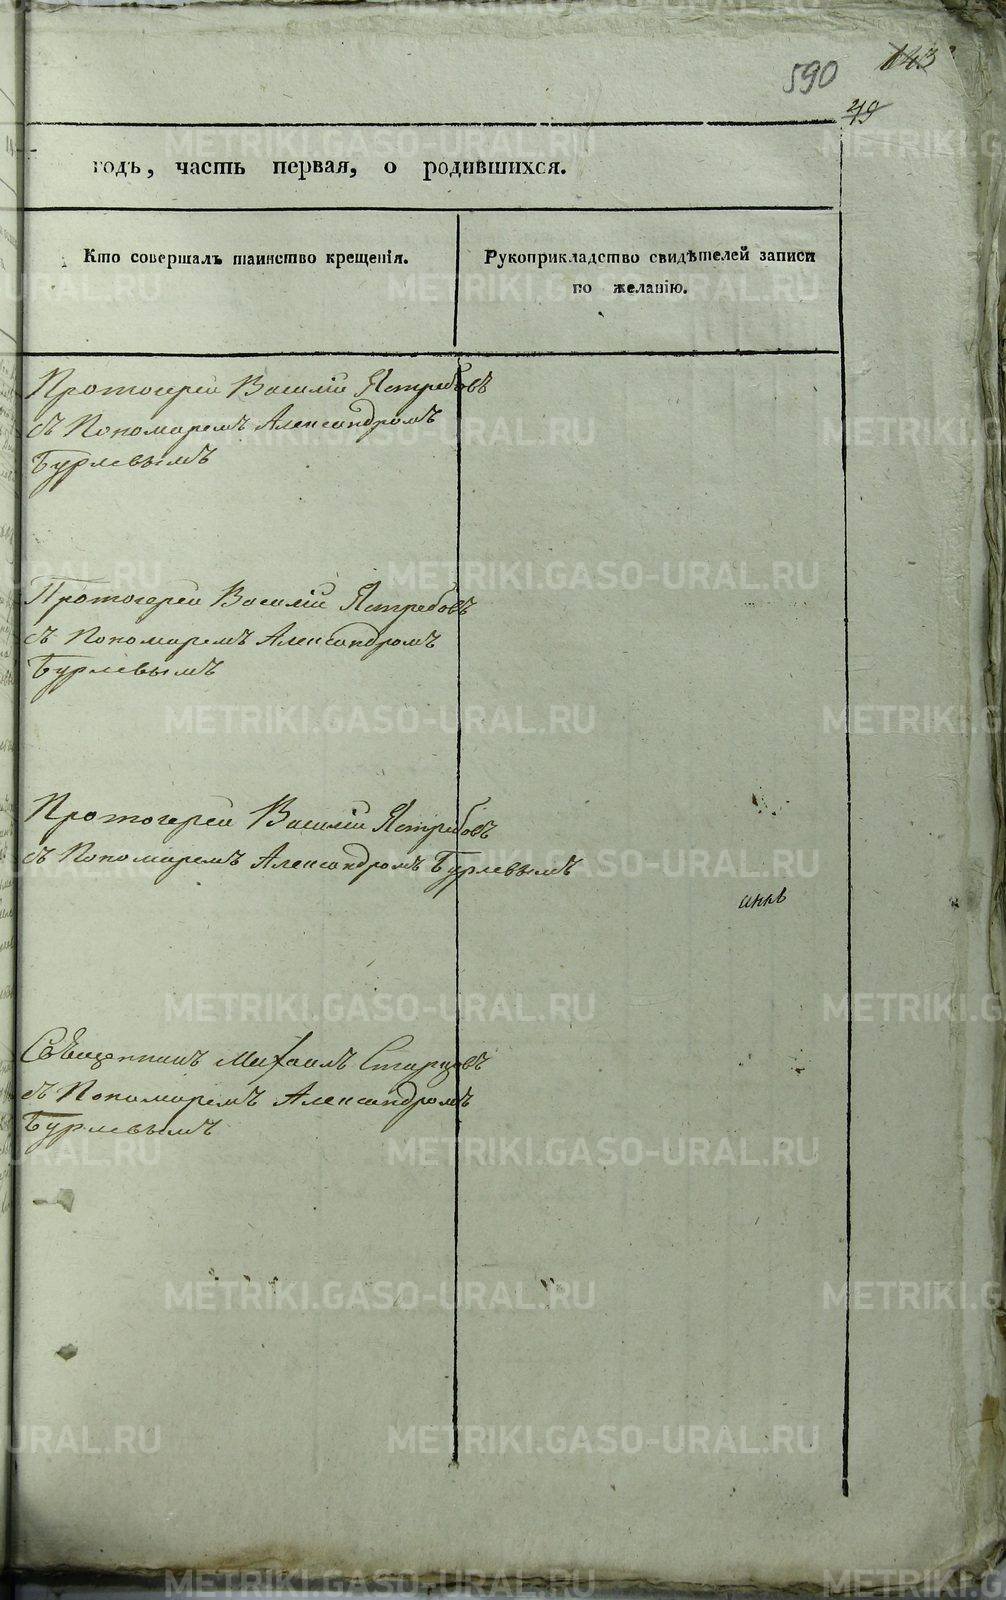 590
143
49
годъ, часть первая, о родившихся.
Кто совершалъ таинство крещенія.
Рукоприкладство свидѣтелей записи
по желанію.
Протоіерей Василій Ястребовъ
съ Пономаремъ Александромъ
Бурлевымъ
Протоіерей Василій Ястребовъ
съ Пономаремъ Александромъ
Бурлевымъ
Протоіерей Василій Ястребовъ
съ Пономаремъ Александромъ Бурлевымъ
Священникъ Михаилъ Старцовъ
съ Пономаремъ Александромъ
Бурлевымъ
METRIKI.GASO-URAL.RU